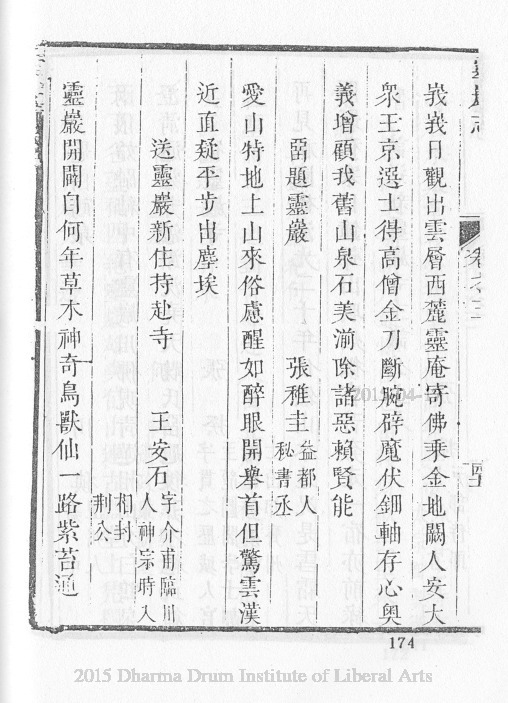 靈巖志
卷之三
峩峩日觀出雲層西麓靈庵寄佛乘金地闕人安大
衆王京選士得高僧金刀斷腕辟魔伏鈿軸存心奧
義增顧我舊山泉石美湔除諸惡賴賢能
畱題靈巖 張稚圭 益都人秘書丞
愛山特地上山來俗慮醒如醉眼開舉首但驚雲漢
近直疑平步出塵埃
送靈巖新住持赴寺 王安石 字介甫臨川人神宗時入相封荆公
靈巖開闢自何年草木神奇鳥獸仙一路紫苔通
174
2015 Dharma Drum Institute of Liberal Arts